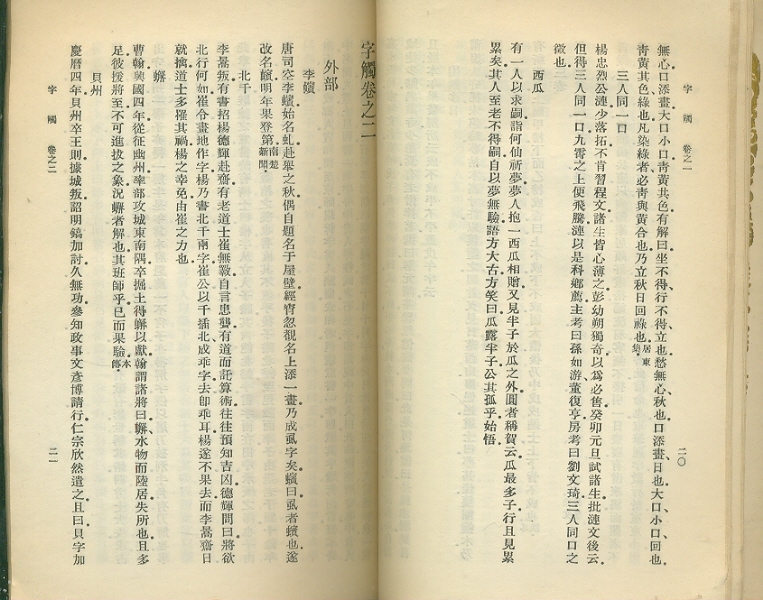 字觸　卷之一
二〇
無心口添畫大口小口青黃共色有解曰坐不得行不得立也愁無心秋也口添畫日也大口小口回也
青黃其色綠也凡染綠者必青與黃合也乃立秋日回祿也居東集
三人同一口
楊忠烈公漣少落拓不肯習程文諸生皆心薄之彭幼朔獨奇以為必售癸卯元旦試諸生批漣文後云
但得三人同一口九霄之上便飛騰漣以是科鄉薦主考曰孫如游董復亨房考曰劉文琦三人同口之
徵也
西瓜
有一人以求嗣詣何仙祈夢夢人抱一西瓜相贈又見半子於瓜之外圓者稱賀云瓜最多子行且見累
累矣其人至老不得嗣自以夢無驗語方大古方笑曰瓜露半子公其孤乎始悟
字觸卷之二
外部
李蠙
唐司空李蠙始名虬赴舉之秋偶自題名于屋壁經宵忽覩名上添一畫乃成虱字矣蠙曰虱者蠙也遂
改名蠙明年果登第南楚新聞
北千
李暠叛有書招楊德輝赴齋有老道士崔無斁自言患聾有道而託算術往往預知吉凶德輝問曰將欲
北行何如崔令畫地作字楊乃書北千兩字崔公以千插北成乖字去卽乖耳楊遂不果去而李暠齋日
就擒道士多罹其禍楊之幸免由崔之力也
蠏
曹翰興國四年從征幽州率部攻城東南隅卒掘土得蠏以獻翰謂諸將曰蠏水物而陸居失所也且多
足彼援將至不可進拔之象況蠏者解也其班師乎已而果驗本傳
貝州
慶曆四年貝州卒王則據城叛詔明鎬加討久無功參知政事文彥博請行仁宗欣然遣之且曰貝字加
字觸　卷之二
二一